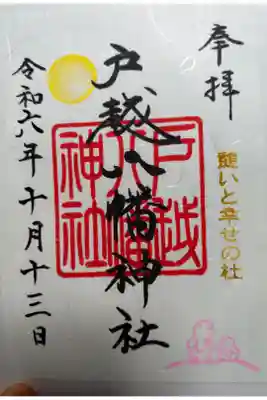 奉拝
憩いと幸せの社
戸越八幡神社
戸越八幡神社
令和六年十月十三日